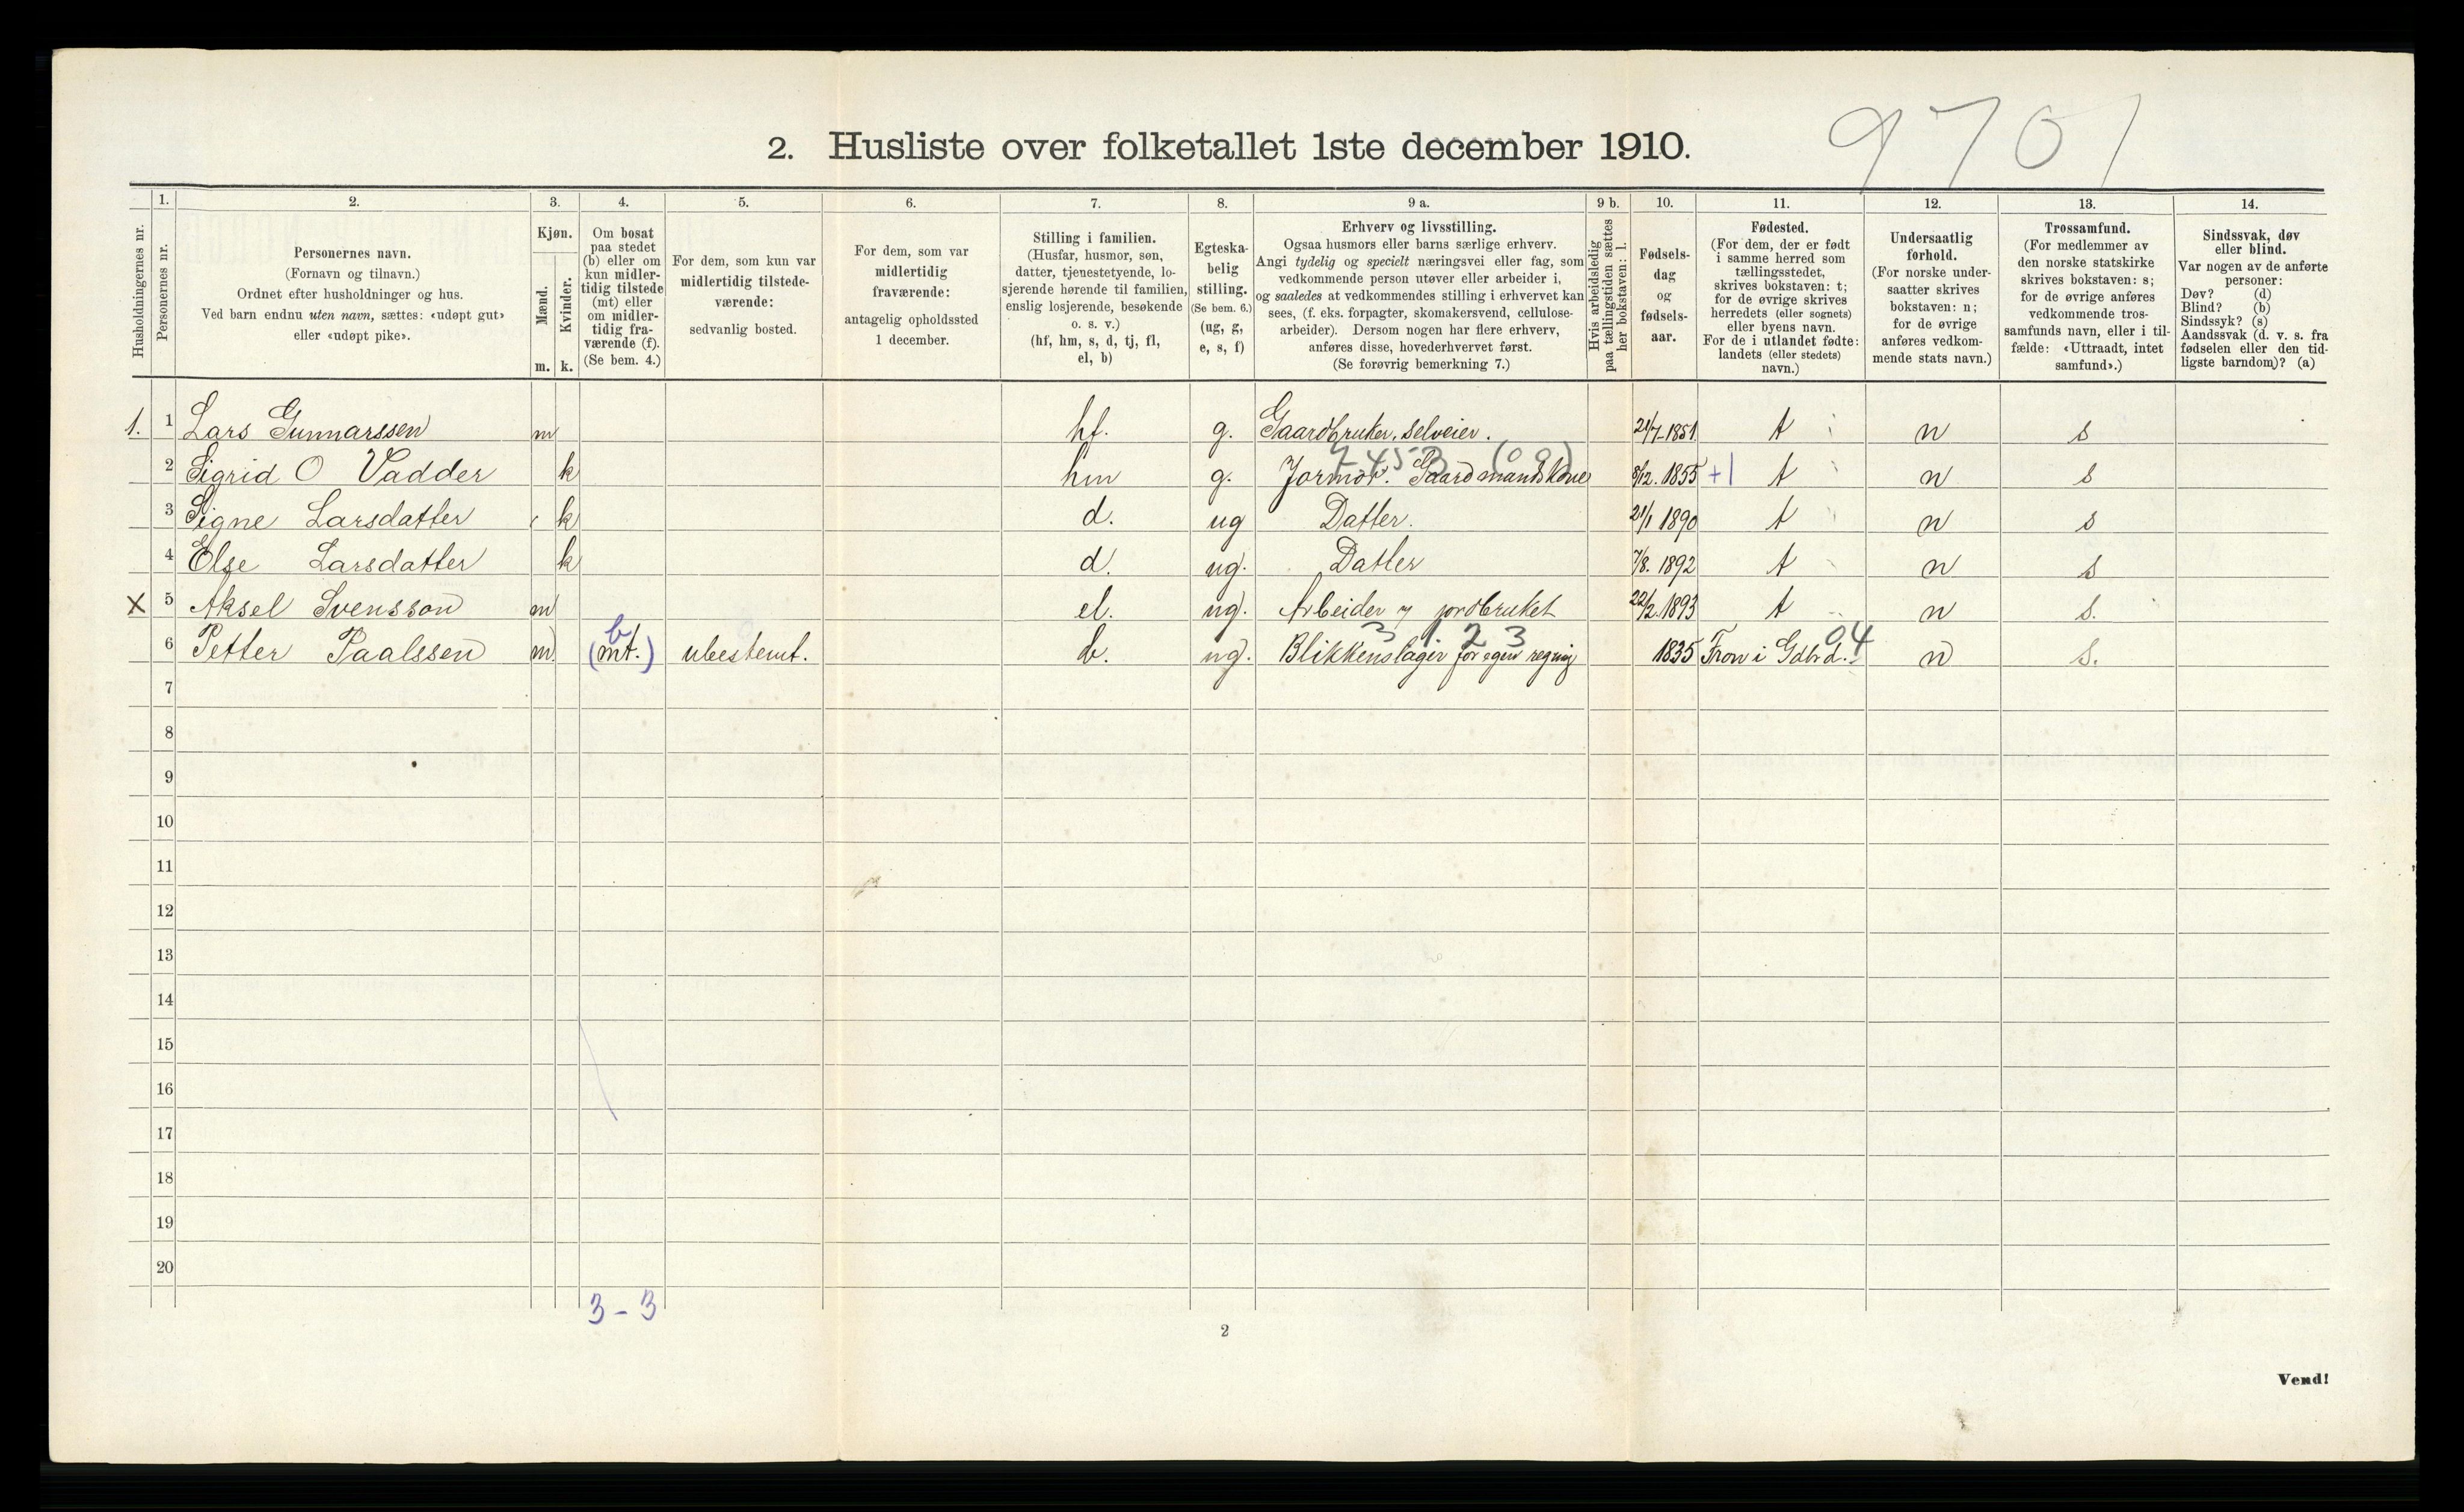 9701
2. Husliste over folketallet 1ste december 1910.
Husholdningernes nr.
1.
Personernes nr.
2.
Personernes navn.
(Fornavn og tilnavn.)
Ordnet efter husholdninger og hus.
Ved barn endnu uten navn, sættes: «udøpt gut»
eller «udøpt pike».
3.
Kjøn.
Mænd.
Kvinder.
m. k.
4.
Om bosat
paa stedet
(b) eller om
kun midler-
tidig tilstede
(mt) eller
om midler-
tidig fra-
værende (f).
(Se bem. 4.)
5.
For dem, som kun var
midlertidig tilstede-
værende:
sedvanlig bosted.
6.
For dem, som var
midlertidig
fraværende:
antagelig opholdssted
1 december.
7.
Stilling i familien.
(Husfar, husmor, søn,
datter, tjenestetyende, lo-
sjerende hørende til familien,
enslig losjerende, besøkende
o. s. v.)
(hf, hm, s, d, tj, fl,
el, b)
8.
Egteska-
belig
stilling.
(Se bem. 6.)
(ug, g,
e, s, f)
9 a.
Erhverv og livsstilling.
Ogsaa husmors eller barns særlige erhverv.
Angi tydelig og specielt næringsvei eller fag, som
vedkommende person utøver eller arbeider i,
og saaledes at vedkommendes stilling i erhvervet kan
sees, (f. eks. forpagter, skomakersvend, cellulose-
arbeider). Dersom nogen har flere erhverv,
anføres disse, hovederhvervet først.
(Se forøvrig bemerkning 7.)
9 b.
Hvis arbeidsledig
paa tællingstiden sættes
her bokstaven: l.
10.
Fødsels-
dag
og
fødsels-
aar.
11.
Fødested.
(For dem, der er født
i samme herred som
tællingsstedet,
skrives bokstaven: t;
for de øvrige skrives
herredets (eller sognets)
eller byens navn.
For de i utlandet fødte:
landets (eller stedets)
navn.)
12.
Undersaatlig
forhold.
(For norske under-
saatter skrives
bokstaven: n;
for de øvrige
anføres vedkom-
mende stats navn.)
13.
Trossamfund.
(For medlemmer av
den norske statskirke
skrives bokstaven: s;
for de øvrige anføres
vedkommende tros-
samfunds navn, eller i til-
fælde: «Uttraadt, intet
samfund».)
14.
Sindssvak, døv
eller blind.
Var nogen av de anførte
personer:
Døv? (d)
Blind? (b)
Sindssyk? (s)
Aandssvak (d. v. s. fra
fødselen eller den tid-
ligste barndom)? (a)
1. 1 Lars Gunnarssen m hf. g. Gaardbruker, selveier. 21/7-1851 t n s
2 Sigrid O Vadder k hm g. Jormor. Gaardmandskone 8/12. 1855 +1 t n s
3 Signe Larsdatter k d. ug Datter. 21/1 1890 t n s
4 Else Larsdatter k d. ug. Datter 7/8. 1892 t n s
X 5 Aksel Svensson m el. ug. Arbeider v jordbruket 22/2. 1893 t n s.
b 3 1 2 3 04
6 Petter Paalssen m (mt.) ubestemt. b. ug. Blikkenslager for egen regning 1835 Fron i Gdbrd. n s.
7
8
9
10
11
12
13
14
15
16
17
18
19
20
3 - 3
2
Vend!